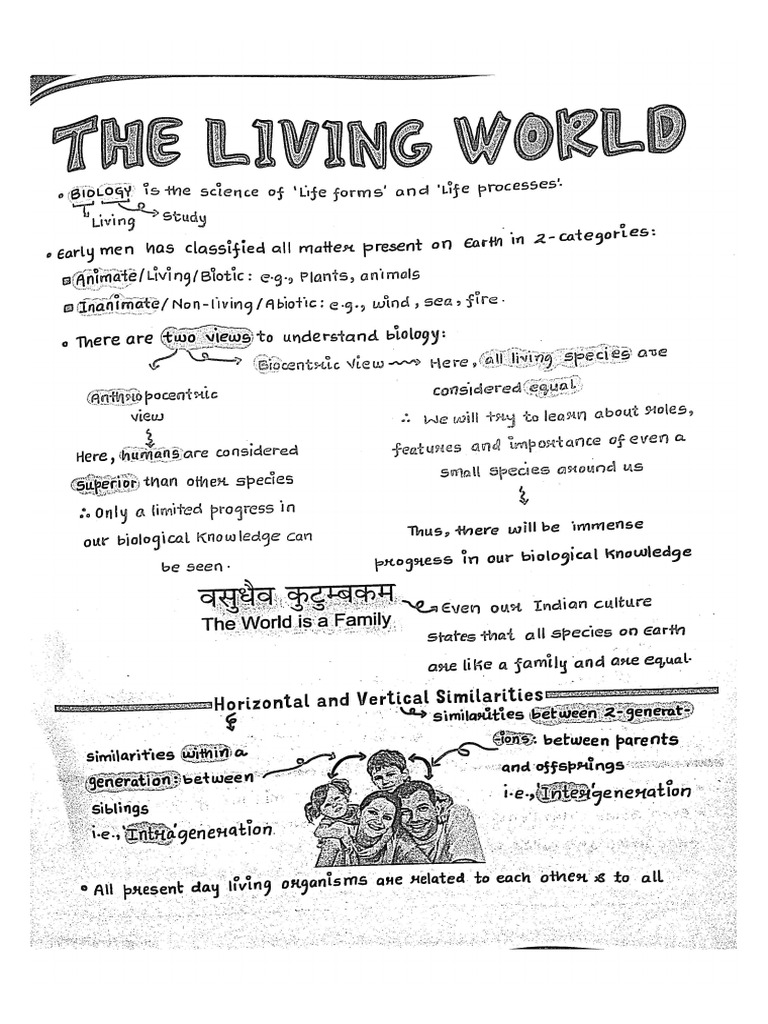 THE LIVING WORLD
• BIOLOGY is the science of 'Life forms' and 'Life processes'.
Living Study
• Early men has classified all matter present on Earth in 2-categories:
Animate/Living/Biotic: e.g., Plants, animals
Inanimate/Non-living/Abiotic: e.g., wind, sea, fire.
• There are two views to understand biology:
Anthropocentric
view
Here, humans are considered
Superior than other species
∴ Only a limited progress in
our biological Knowledge can
be seen.
Biocentric View Here, all living species are
considered equal
∴ We will try to learn about roles,
features and importance of even a
small species around us
Thus, there will be immense
progress in our biological Knowledge
वसुधैव कुटुम्बकम
The World is a Family
Even our Indian culture
states that all species on Earth
are like a family and are equal.
Horizontal and Vertical Similarities
similarities within a
generation: between
siblings
i.e., 'Intra'generation
similarities between 2-generat-
-ions: between parents
and offsprings
i.e., 'Inter'generation
• All present day living organisms are related to each other & to all